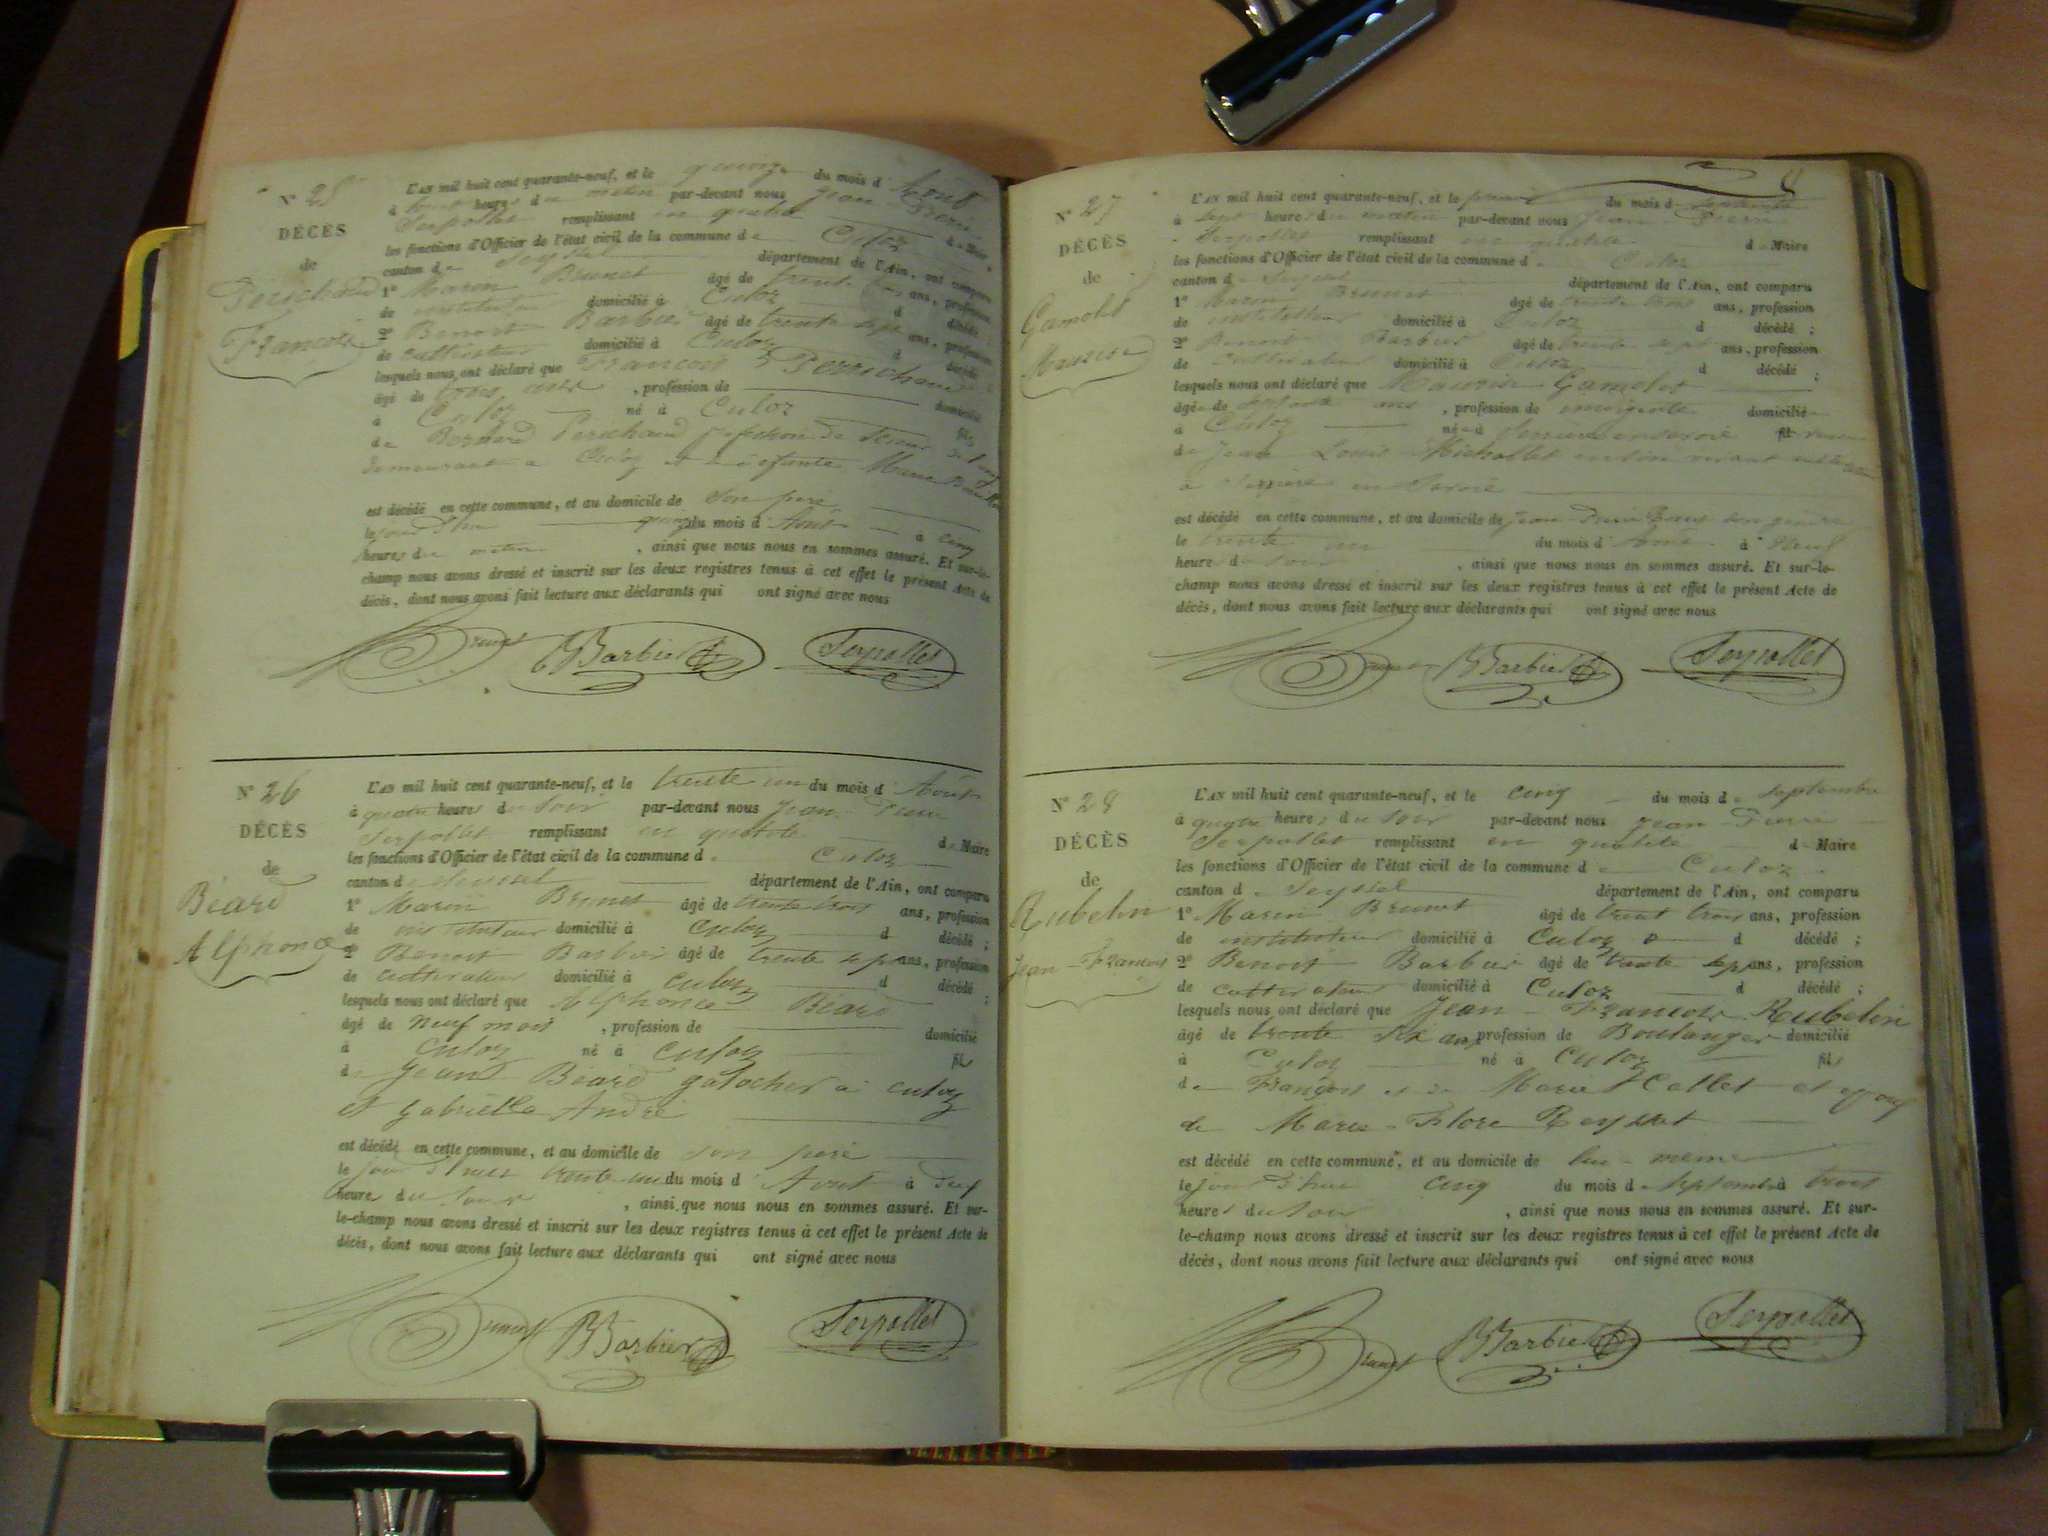 N° 25
DÉCÈS
de
Perichaud
François
L'AN mil huit cent quarante-neuf, et le quinze du mois d'Août
à huit heures du matin par-devant nous Jean Pierre
Serpollet remplissant en qualité de Maire
les fonctions d'Officier de l'état civil de la commune de Culoz
canton de Seyssel département de l'Ain, ont comparu
1° Marin Brunet âgé de trente trois ans, profession
de instituteur domicilié à Culoz d décédé ;
2° Benoit Barbier âgé de trente sept ans, profession
de cultivateur domicilié à Culoz d décédé
lesquels nous ont déclaré que François Perrichaud
âgé de trois ans , profession de domicilié
à Culoz né à Culoz fils
de Bernard Perichaud
demeurant à Culoz et de défunte Marie
est décédé en cette commune, et au domicile de son père
le jour d'hui quinze du mois d'Août à cinq
heures du matin , ainsi que nous nous en sommes assuré. Et sur-le-
champ nous avons dressé et inscrit sur les deux registres tenus à cet effet le présent Acte de
décès, dont nous avons fait lecture aux déclarants qui ont signé avec nous
Brunet BBarbier Serpollet
N° 26
DÉCÈS
de
Béard
Alphonce
L'AN mil huit cent quarante-neuf, et le trente un du mois d'Août
à quatre heures du soir par-devant nous Jean-Pierre
Serpollet remplissant en qualité de Maire
les fonctions d'Officier de l'état civil de la commune de Culoz
canton de Seyssel département de l'Ain, ont comparu
1° Marin Brunet âgé de trente trois ans, profession
de instituteur domicilié à Culoz d décédé ;
2° Benoit Barbier âgé de trente sept ans, profession
de cultivateur domicilié à Culoz d décédé ;
lesquels nous ont déclaré que Alphonce Béard
âgé de neuf mois , profession de domicilié
à Culoz né à Culoz fils
de Jean Béard galocher à Culoz
et Gabriella André
est décédé en cette commune, et au domicile de son père
le jour d'hui trente un du mois d'Août à deux
heures du soir , ainsi que nous nous en sommes assuré. Et sur-
le-champ nous avons dressé et inscrit sur les deux registres tenus à cet effet le présent Acte de
décès, dont nous avons fait lecture aux déclarants qui ont signé avec nous
Brunet BBarbier Serpollet
N° 27
DÉCÈS
de
Gamolet
Maurise
L'AN mil huit cent quarante-neuf, et le premier du mois de septembre
à sept heures du matin par-devant nous Jean Pierre
Serpollet remplissant en qualité de Maire
les fonctions d'Officier de l'état civil de la commune de Culoz
canton de Seyssel département de l'Ain, ont comparu
1° Marin Brunet âgé de trente trois ans, profession
de instituteur domicilié à Culoz d décédé ;
2° Benoit Barbier âgé de trente sept ans, profession
de cultivateur domicilié à Culoz d décédé ;
lesquels nous ont déclaré que Maurise Gamolet
âgée de septante ans , profession de domicilié
à Culoz née à Serrières en Savoie
de Jean Louis Michollet en son vivant
à Serrières en Savoie
est décédé en cette commune, et au domicile de Jean son gendre
le trente un du mois d'Août à neuf
heures du soir , ainsi que nous nous en sommes assuré. Et sur-le-
champ nous avons dressé et inscrit sur les deux registres tenus à cet effet le présent Acte de
décès, dont nous avons fait lecture aux déclarants qui ont signé avec nous
Brunet BBarbier Serpollet
N° 28
DÉCÈS
de
Rubelin
Jean-François
L'AN mil huit cent quarante-neuf, et le cinq du mois de septembre
à quatre heures du soir par-devant nous Jean-Pierre
Serpollet remplissant en qualité de Maire
les fonctions d'Officier de l'état civil de la commune de Culoz
canton de Seyssel département de l'Ain, ont comparu
1° Marin Brunet âgé de trent trois ans, profession
de instituteur domicilié à Culoz d décédé ;
2° Benoit Barbier âgé de trente sept ans, profession
de cultivateur domicilié à Culoz d décédé ;
lesquels nous ont déclaré que Jean-François Rubelin
âgé de trente six ans profession de Boulanger domicilié
à Culoz né à Culoz fils
de François et de Marie et epoux
de Marie-Flore Reysset
est décédé en cette commune, et au domicile de lui-meme
le jour d'hui cinq du mois de septembre à trois
heures du soir , ainsi que nous nous en sommes assuré. Et sur-
le-champ nous avons dressé et inscrit sur les deux registres tenus à cet effet le présent Acte de
décès, dont nous avons fait lecture aux déclarants qui ont signé avec nous
Brunet BBarbier Serpollet